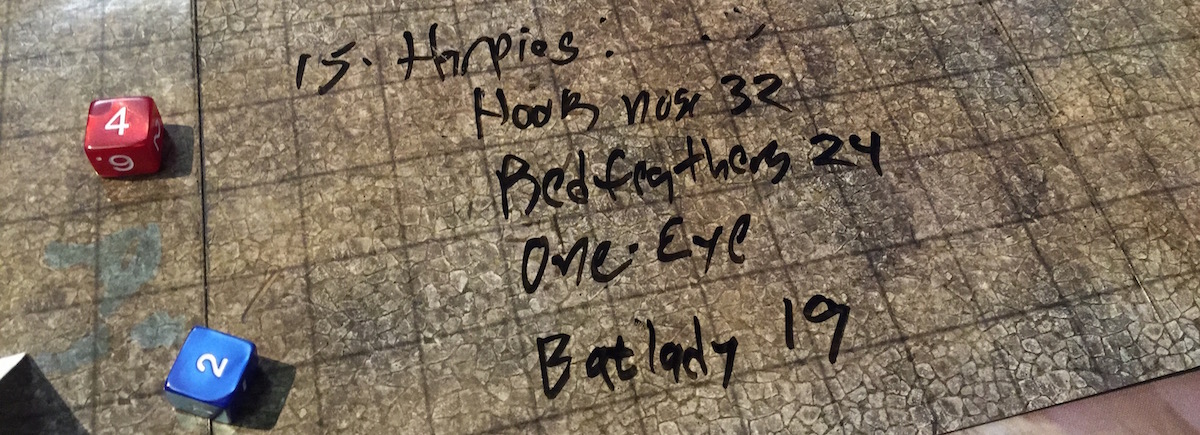 15. Harpies:
Hook nose 32
Redfeathers 24
One-Eye
Batlady 19
4
9
2